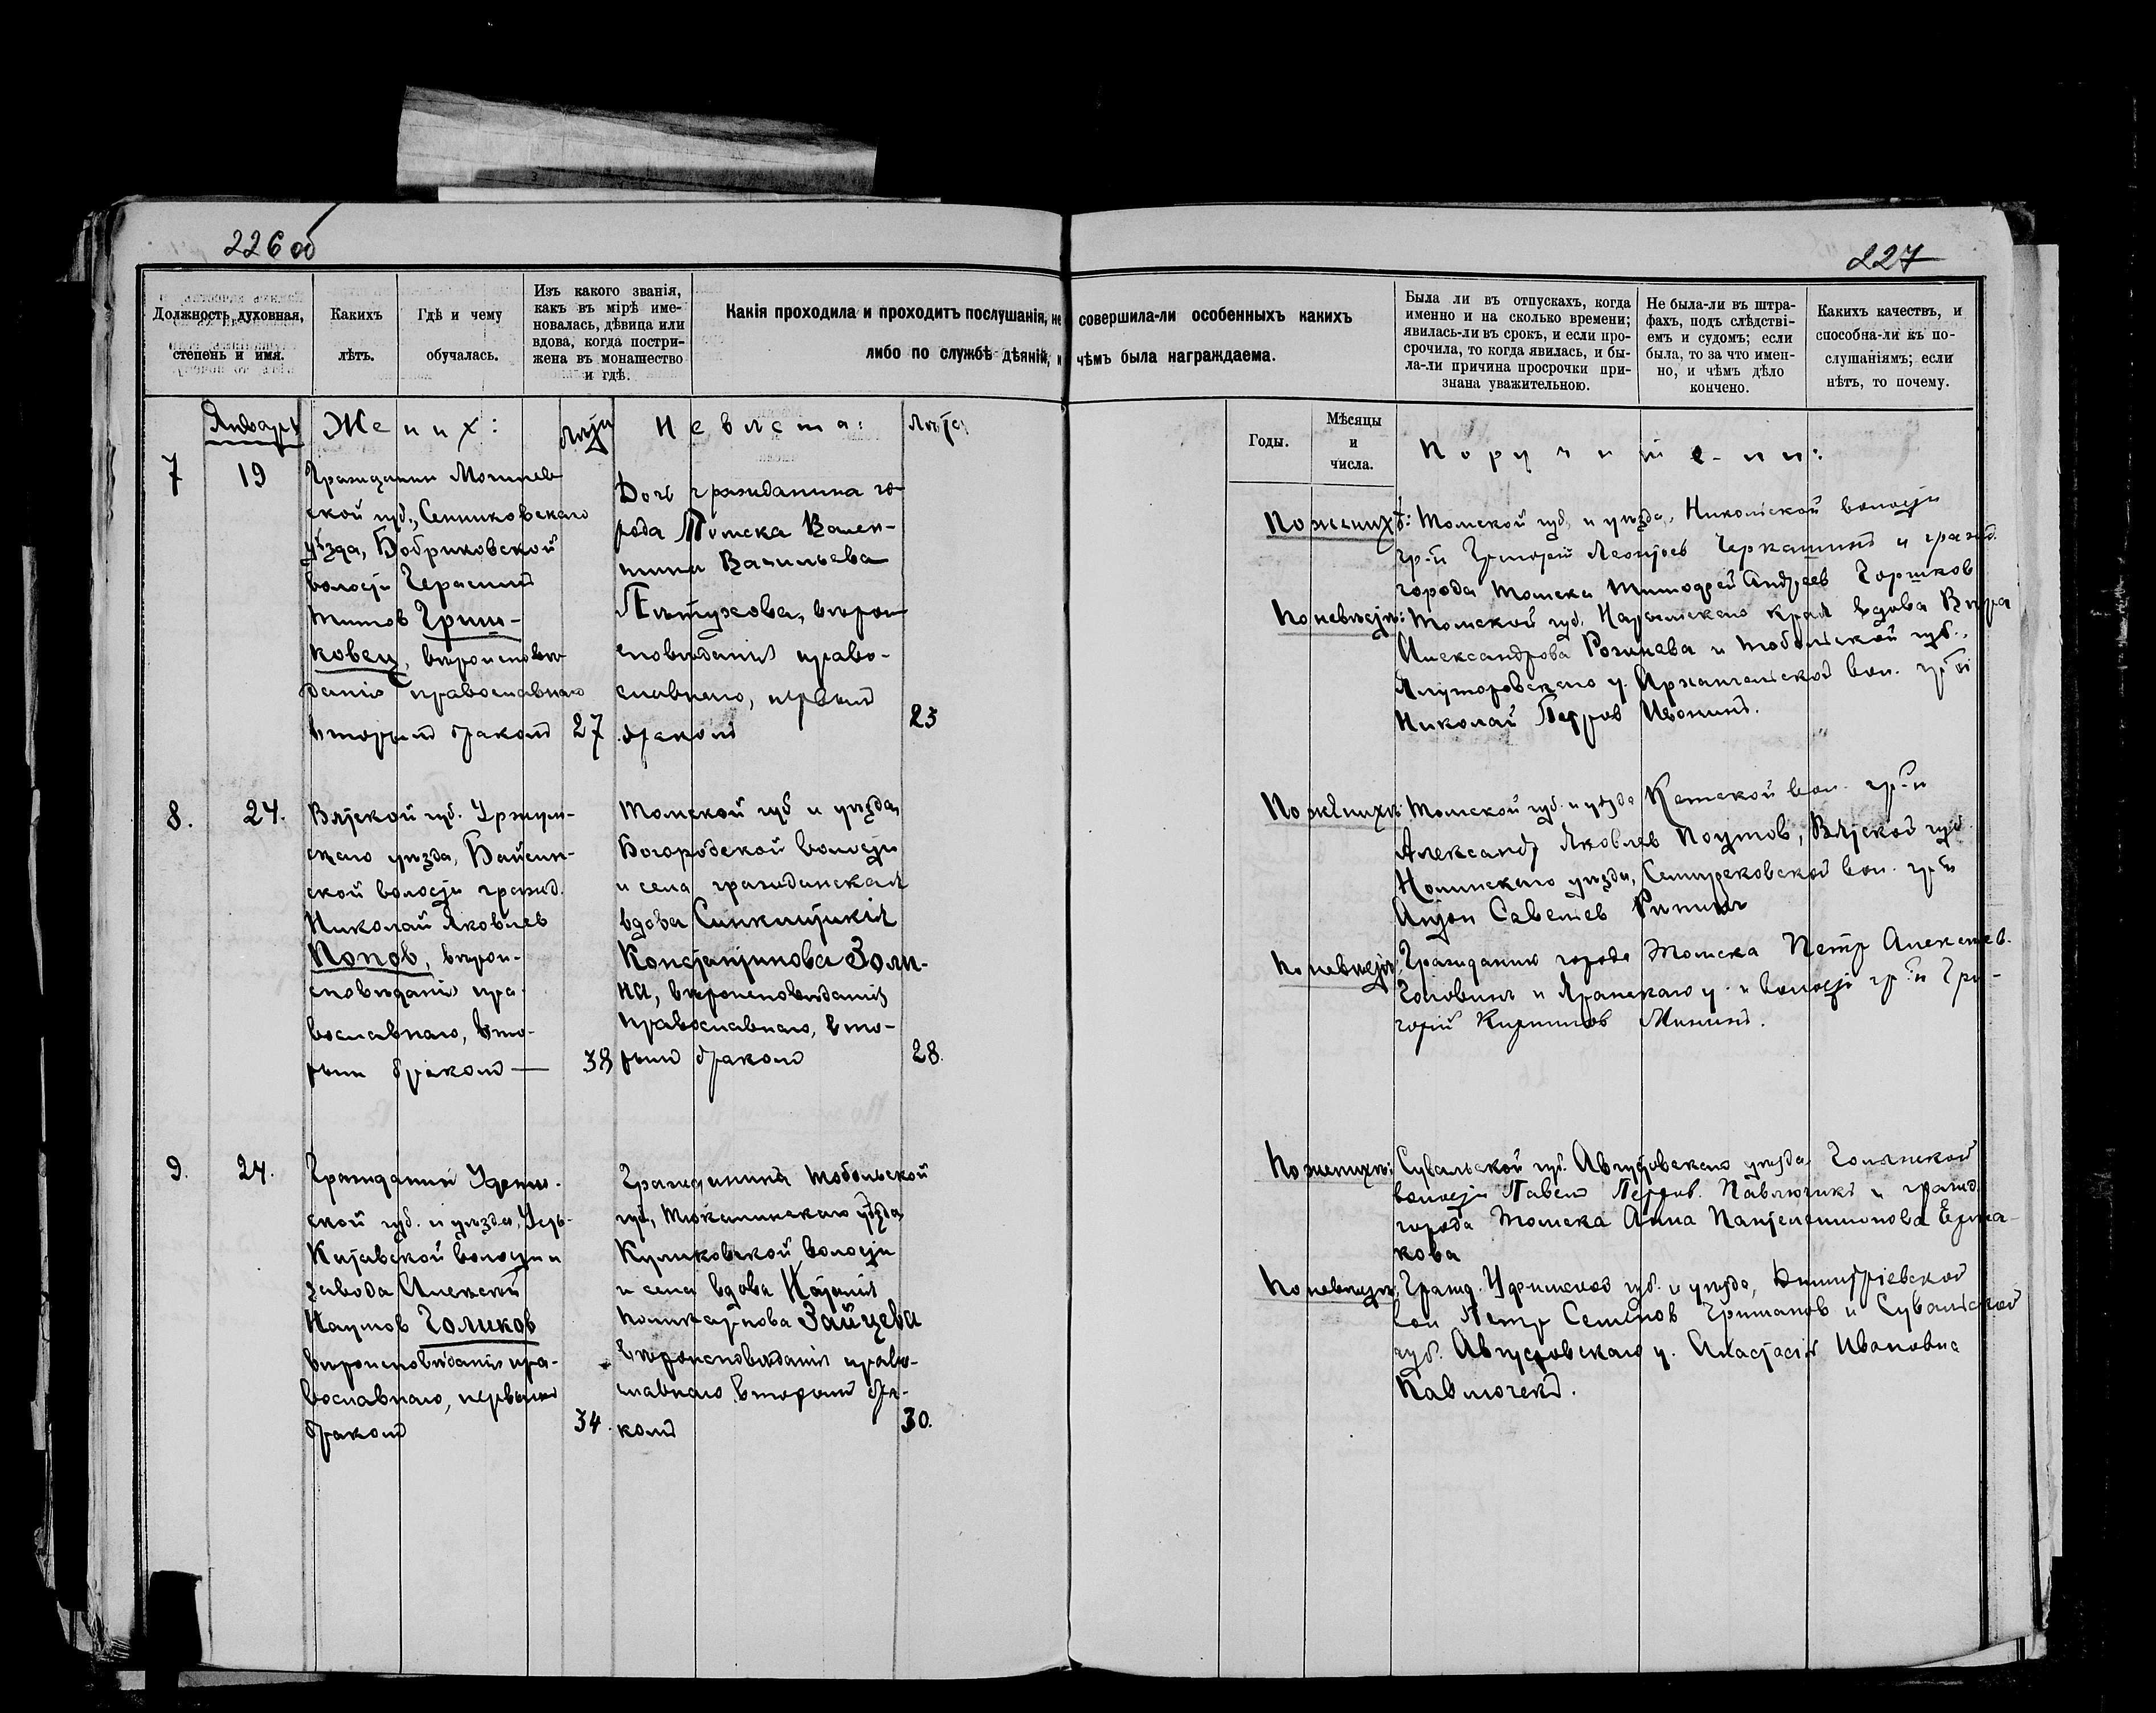 226 об
227
Должность духовная,
степень и имя.
Какихъ
лѣтъ.
Гдѣ и чему
обучалась.
Изъ какого званія,
какъ въ мірѣ име-
новалась, дѣвица или
вдова, когда постри-
жена въ монашество
и гдѣ.
Какія проходила и проходитъ послушанія, не совершила-ли особенныхъ какихъ
либо по службѣ дѣяній, и чѣмъ была награждаема.
Была ли въ отпускахъ, когда
именно и на сколько времени;
явилась-ли въ срокъ, и если про-
срочила, то когда явилась, и бы-
ла-ли причина просрочки при-
знана уважительною.
Не была-ли въ штра-
фахъ, подъ слѣдстві-
емъ и судомъ; если
была, то за что имен-
но, и чѣмъ дѣло
кончено.
Какихъ качествъ, и
способна-ли къ по-
слушаніямъ; если
нѣтъ, то почему.
Годы.
Мѣсяцы
и
числа.
Январь
Жених:
Невѣста:
Лѣта
Поручители:
7
19
Гражданин Могилев
ской губ., Сенниковскаго
уѣзда, Бобриковской
волости Герасим
Титов Гриш-
ковец, вѣроисповѣ
данія православнаго
вторым браком
27
Дочь гражданина го-
рода Томска Вален-
тина Васильева
Пѣтухова, вѣрои
сповѣданія право-
славнаго, первым
браком
23
По женихѣ: Томской губ. и уѣзда, Никольской волости
гр-н Григорій Леонтьев Черкашинъ и гражд.
города Томска Тимофей Андреев Горшков
По невѣстѣ: Томской губ. Нарымскаго края вдова Вѣра
Александрова Рогачева и Тобольской губ.,
Ялуторовскаго у. Архангельской вол. гр-н
Николай Петров Ивонинъ.
8.
24.
Вятской губ. Уржум-
скаго уѣзда, Байсин-
ской волости гражд.
Николай Яковлев
Попов, вѣрои-
сповѣданія пра-
вославнаго, вто-
рым браком
38
Томской губ и уѣзда
Богородской волости
и села гражданская
вдова Синклитикія
Константинова Золи-
на, вѣроисповѣданія
православнаго, вто-
рым браком
28.
По женихѣ: Томской губ. и уѣзда Кетской вол. гр-н
Александр Яковлев Поутов, Вятской губ.
Нолинскаго уѣзда, вол. гр-н
Антон Савельев
По невѣстѣ: Гражданин города Томска Петр Алексѣев.
Головинъ и Яранскаго у. и волости гр-н Гри-
горій Кирилов Мининъ.
9.
24.
Гражданин Уфим-
ской губ. и уѣзда, Усть-
Катавской волости и
завода Алексѣй
Наумов Голиков
вѣроисповѣданія пра-
вославнаго, первым
браком
34.
Гражданка Тобольской
губ, Тюкалинскаго уѣзда
Куликовской волости
и села вдова Наталія
Поликарпова Зайцева
вѣроисповѣданія право-
славнаго вторым бра-
ком
30.
По женихѣ: Сувальской губ. Августовскаго уѣзда
волости Павел Петров. Павлючик и гражд.
города Томска Анна Пантелеимонова Ерма-
кова
По невѣстѣ: Гражд. Уфимской губ. и уѣзда, Димитріевской
вол Петр Семенов и Сувальской
губ. Августовскаго у. Анастасія Ивановна
Павлючекъ.